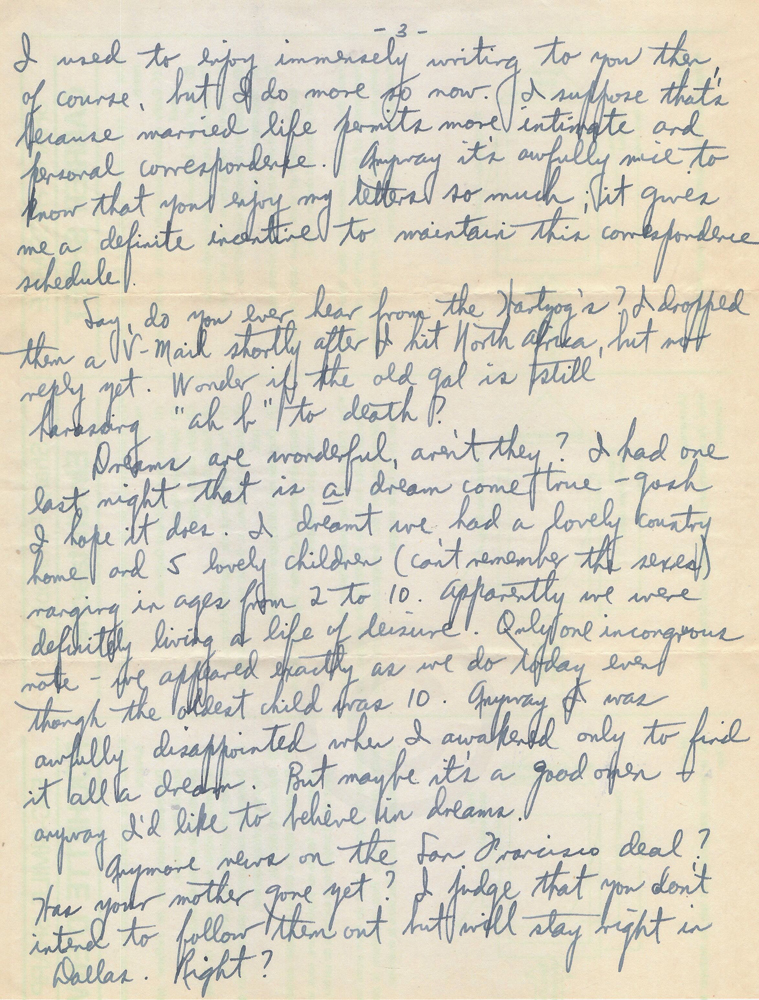 - 3 -
I used to enjoy immensely writing to you then,
of course, but I do more so now. I suppose that's
because married life permits more intimate and
personal correspondence. Anyway it's awfully nice to
know that you enjoy my letters so much; it gives
me a definite incentive to maintain this correspondence
schedule.
Say, do you ever hear from the Hartzog's? I dropped
them a V-Mail shortly after I hit North Africa, but no
reply yet. Wonder if the old gal is still
harassing "ah b" to death?
Dreams are wonderful, aren't they? I had one
last night that is a dream come true - gosh
I hope it does. I dreamt we had a lovely country
home and 5 lovely children (can't remember the sexes)
ranging in ages from 2 to 10. Apparently we were
definitely living a life of leisure. Only one incongruous
note - we appeared exactly as we do today even
though the oldest child was 10. Anyway I was
awfully disappointed when I awakened only to find
it all a dream. But maybe it's a good omen -
anyway I'd like to believe in dreams.
Anymore news on the San Francisco deal?
Has your mother gone yet? I judge that you don't
intend to follow them out but will stay right in
Dallas. Right?